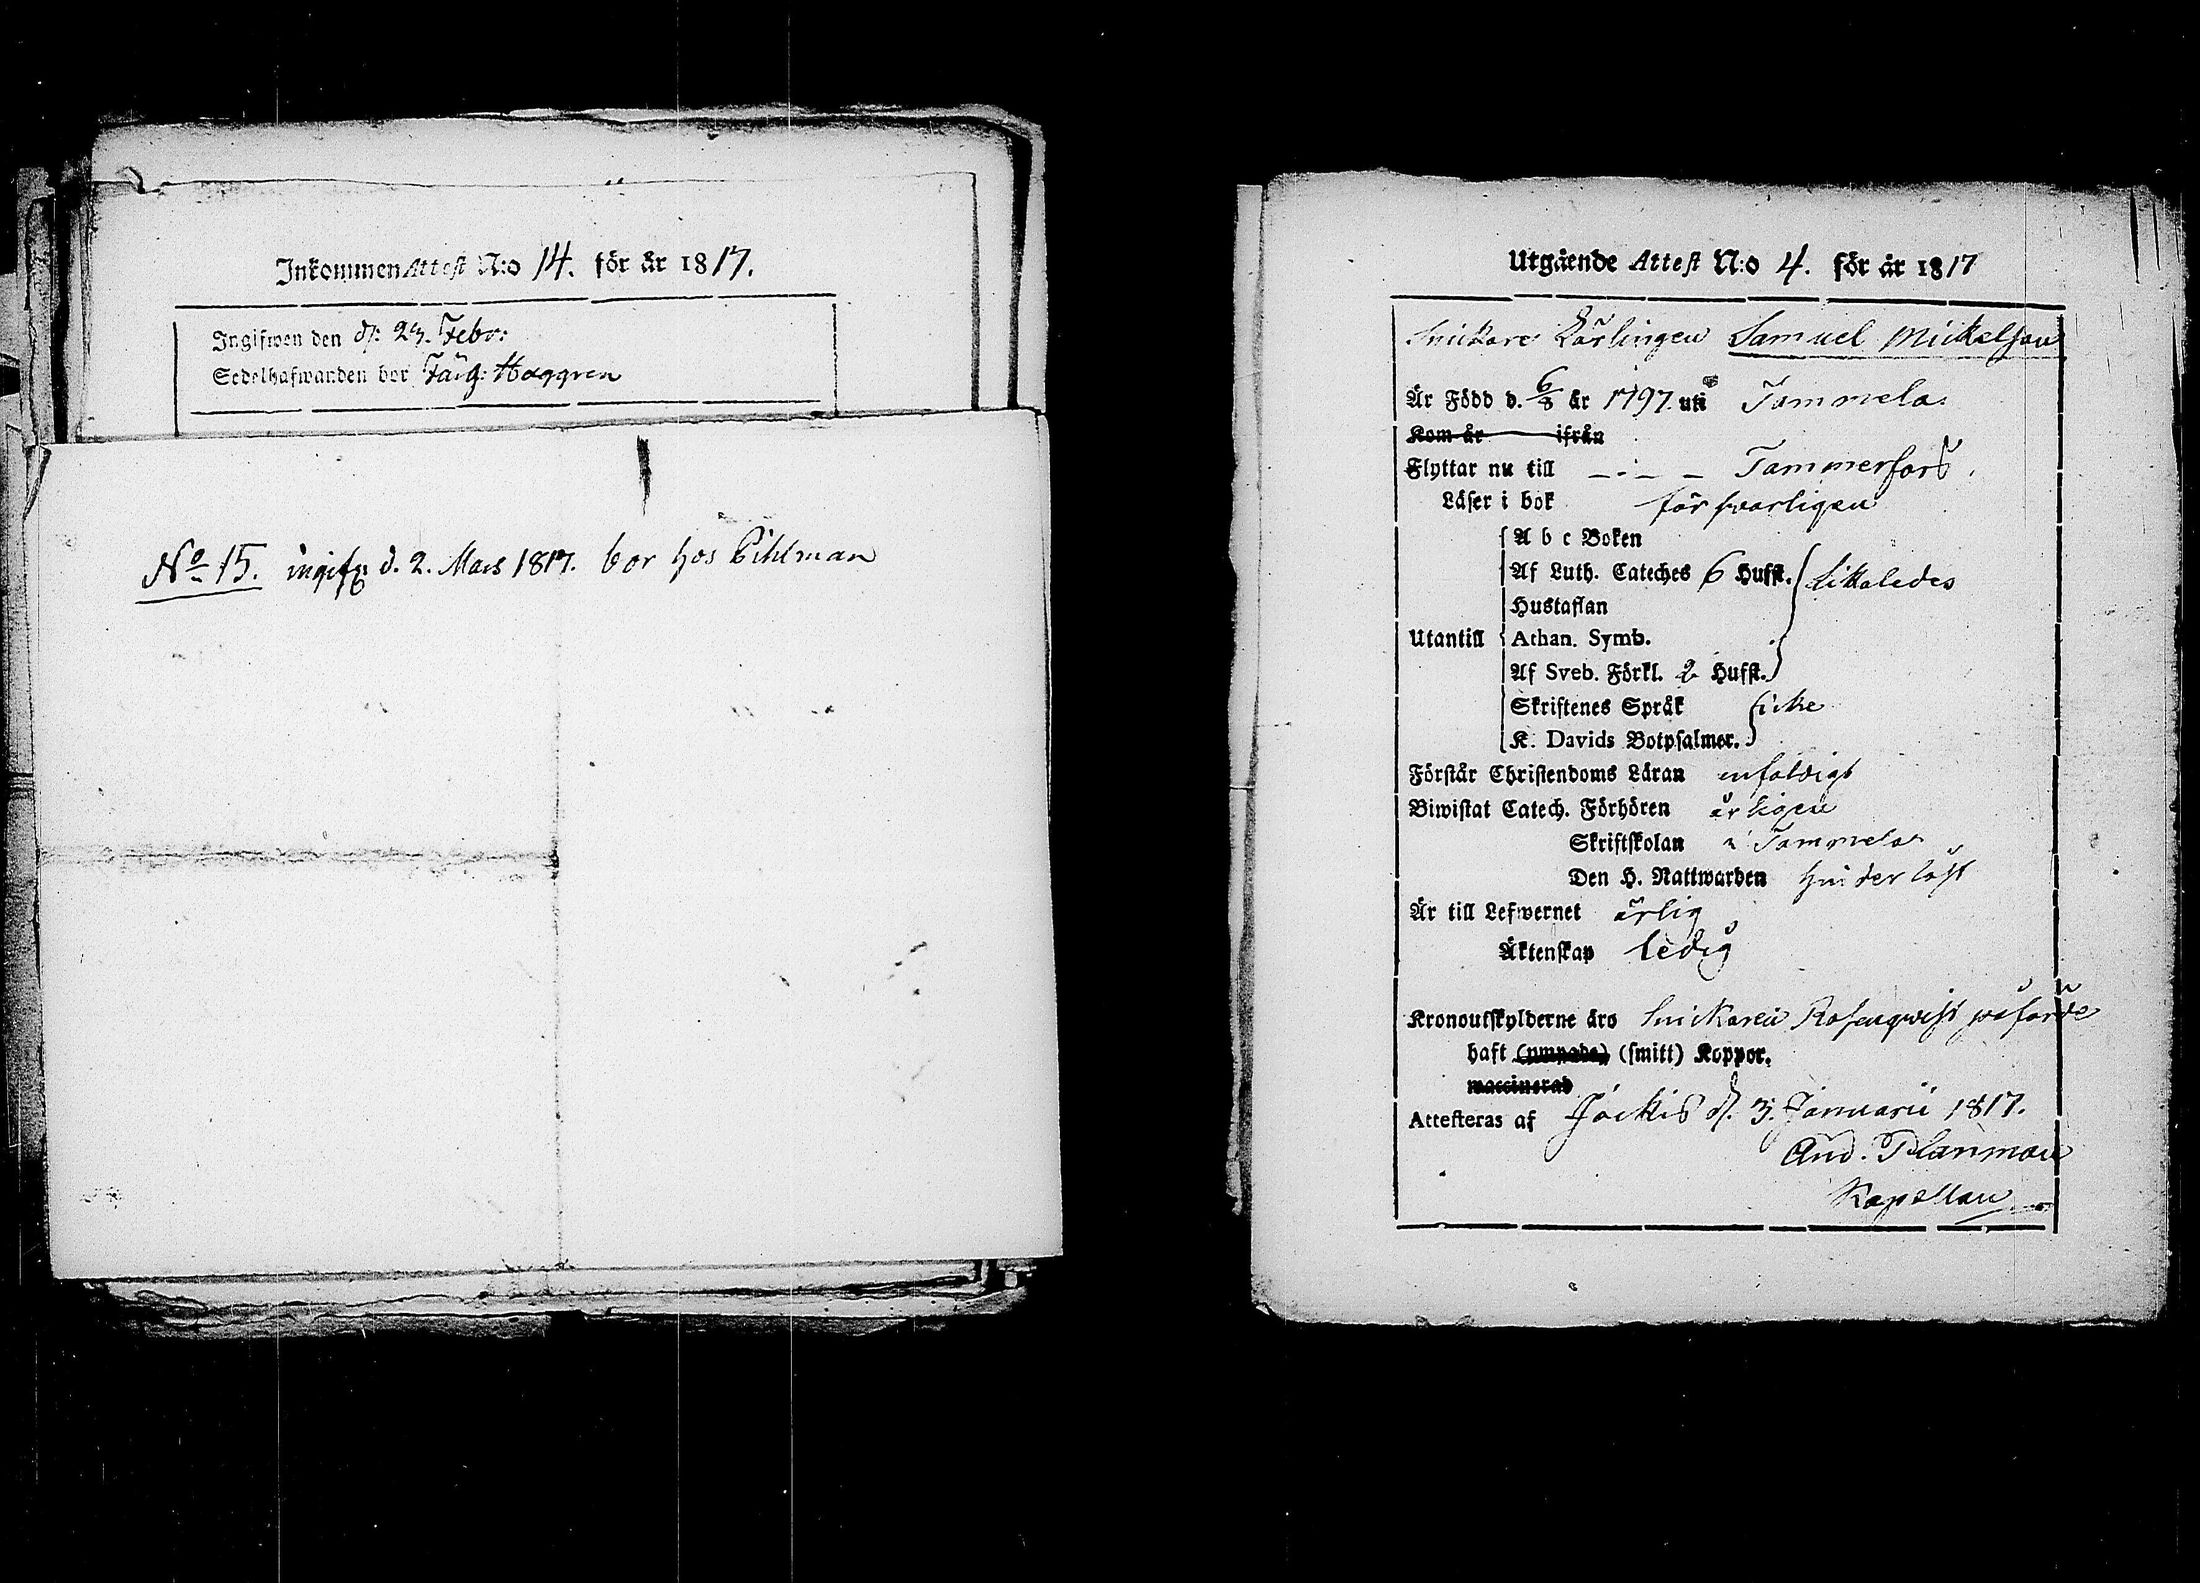 Inkommen Attest N:o 14. för år 1817.
Ingifwen den d: 23. Febr:
Sedelhafwanden bor Färg: Häggren
No 15. ingifv d. 2. Mars 1817. bor hos Pihlman
Utgående Attest N:o 4. för år 1817
Snickare Lärlingen Samuel Mickelsson
Är Född d. 6/8 år 1797. uti Tammela.
Kom år ifrån
Flyttar nu till Tammerfors.
Läser i bok försvarligen
A b c Boken
Af Luth. Cateches 6 Hufst. likaledes
Hustaflan
Utantill Athan. Symb.
Af Sveb. Förkl. 2 Hufst.
Skriftenes Språk icke
K. Davids Botpsalmer.
Förstår Christendoms Läran enfaldigt
Biwistat Catech. Förhören årligen
Skriftskolan i Tammela
Den H. Nattwarden hinderlöst
Är till Lefwernet ärlig
Äktenskap ledig
Kronoutskylderne äro Snickaren Rosenqwist påförde
haft (ympade) (smitt) Koppor.
waccinerad
Attesteras af Jockis d. 3. Januarii 1817.
And. Planman
Kapellan